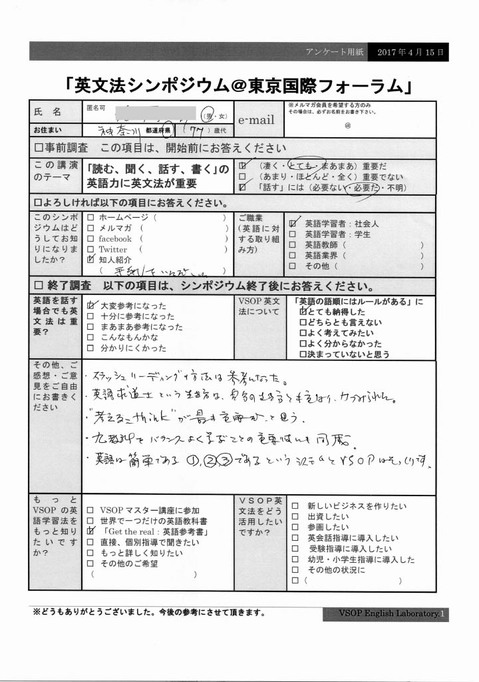 アンケート用紙 2017年4月15日
「英文法シンポジウム＠東京国際フォーラム」
氏名 匿名可 （男・女） e-mail ※メルマガ会員を希望する方のみ
その場合は、必ずお名前をお書き下さい。
＠
お住まい 神奈川 都道府県 （77）歳代
□事前調査 この項目は、開始前にお答えください
この講演のテーマ
「読む、聞く、話す、書く」の英語力に英文法が重要
☑（凄く・とても・まあまあ）重要だ
□（あまり・ほとんど・全く）重要でない
☑「話す」には（必要ない・必要だ・不明）
□よろしければ以下の項目にお答えください。
このシンポジウムはどうしてお知りになりましたか？
□ ホームページ（ ）
□ メルマガ （ ）
□ facebook （ ）
□ Twitter （ ）
☑ 知人紹介
ご職業
（英語に対する取り組み方）
☑ 英語学習者：社会人
□ 英語学習者：学生
□ 英語教師（ ）
□ 英語業界（ ）
□ その他（ ）
□ 終了調査 以下の項目は、シンポジウム終了後にお答えください。
英語を話す場合でも英文法は重要？
☑ 大変参考になった
□ 十分に参考になった
□ まあまあ参考になった
□ こんなもんかな
□ 分かりにくかった
VSOP英文法について
「英語の語順にはルールがある」に
☑とても納得した
□どちらとも言えない
□よく考えてみたい
□よく分からなかった
□決まっていないと思う
その他、ご感想・ご意見をご自由にお書きください
・スラッシュリーディングの方法は参考になった。
・英語求道士という生き方は、
・"考えること think"が最も重要だと思う。
・バランスよく学ぶことの重要性にも同感。
・英語は簡単である ①,②,③であるという VSOPは
もっとVSOPの英語学習法をもっと知りたいですか？
□ VSOPマスター講座に参加
□ 世界で一つだけの英語教科書
☑ 「Get the real：英語参考書」
□ 直接、個別指導で聞きたい
□ もっと詳しく知りたい
□ その他のご希望
（ ）
VSOP英文法をどう活用したいですか？
□ 新しいビジネスを作りたい
□ 出資したい
□ 参画したい
□ 英会話指導に導入したい
□ 受験指導に導入したい
□ 幼児・小学生指導に導入した
□ その他の状況に
□（ ）
※どうもありがとうございました。今後の参考にさせて頂きます。
VSOP English Laboratory 1